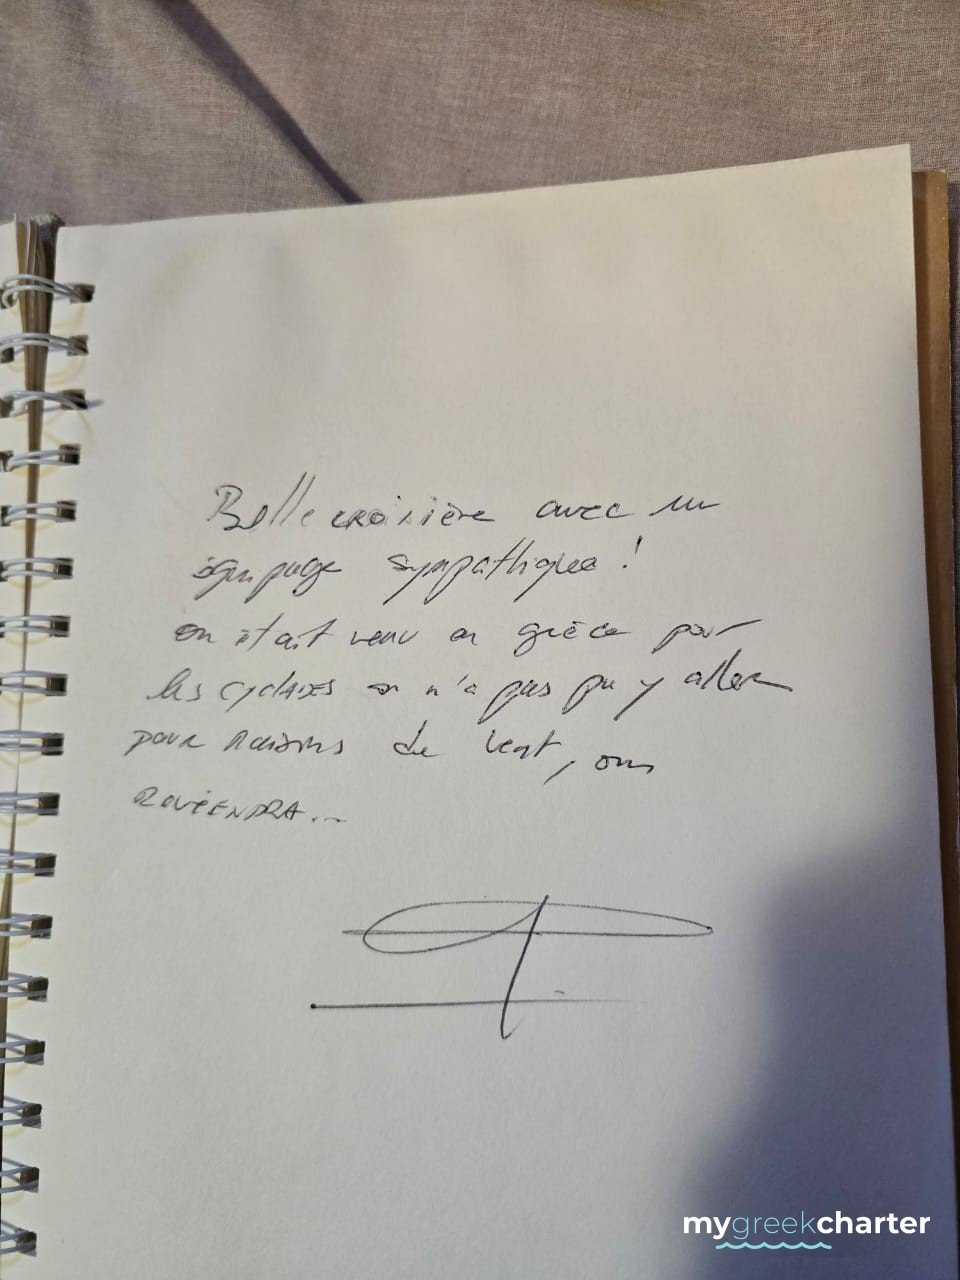 Belle croisière avec un
équipage sympathique !
on était venu en grèce pour
les cyclades on n'a pas pu y aller
pour raisons de vent, on
reviendra...
mygreekcharter